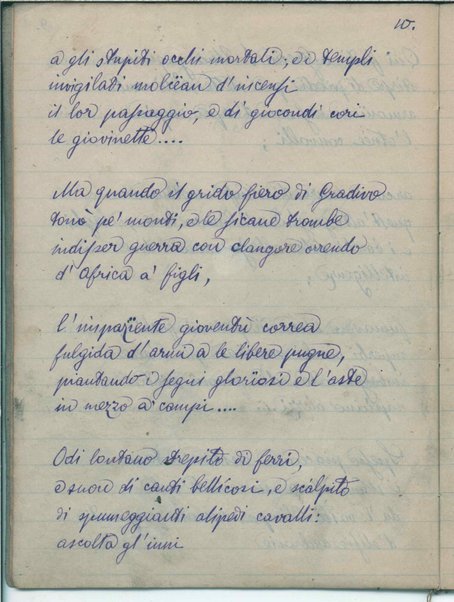 10.
a gli stupiti occhi mortali; ed i templi
invigilati molcëan d'incensi
il lor passaggio, e di giocondi cori
le giovinette....
Ma quando il grido fiero di Gradivo
tonò pe' monti, e le sicane trombe
indisser guerra con clangore orrendo
d'Africa a' figli,
l'impazïente gioventù correa
fulgida d'armi a le libere pugne,
piantando i segni glorïosi e l'aste
in mezzo a' campi....
Odi lontano strepito di ferri,
e suon di canti bellicosi, e scalpito
di spumeggianti alipedi cavalli:
ascolta gl'inni